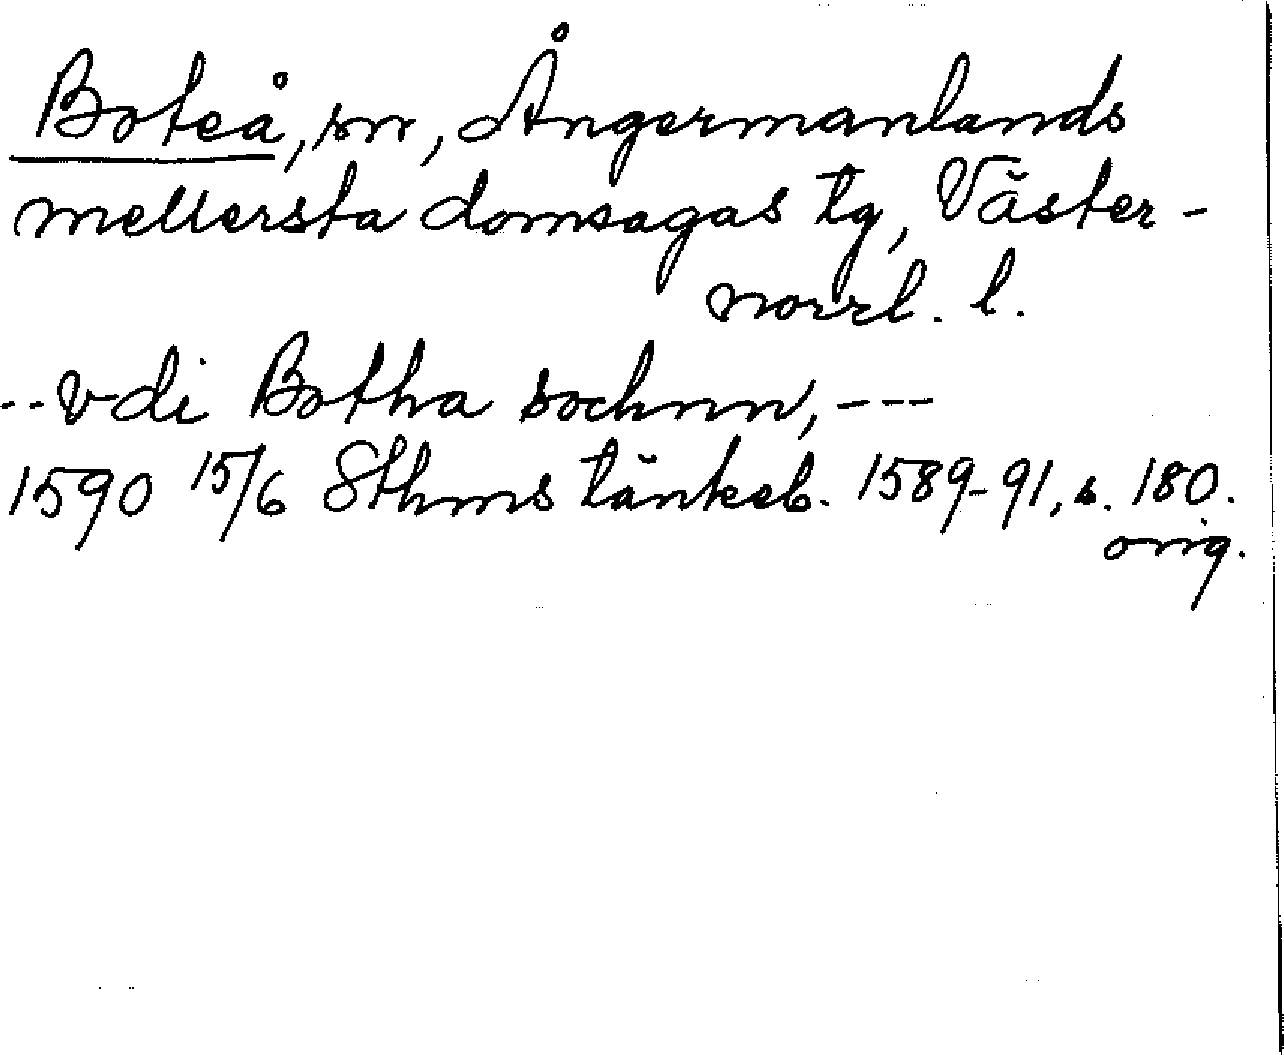 Boteå, sn, Ångermanlands
mellersta domsagas tg, Väster-
norrl. l.
--vdi Botha sochnn, ---
1590 15/6 Sthms tänkeb. 1589-91, s. 180.
orig.